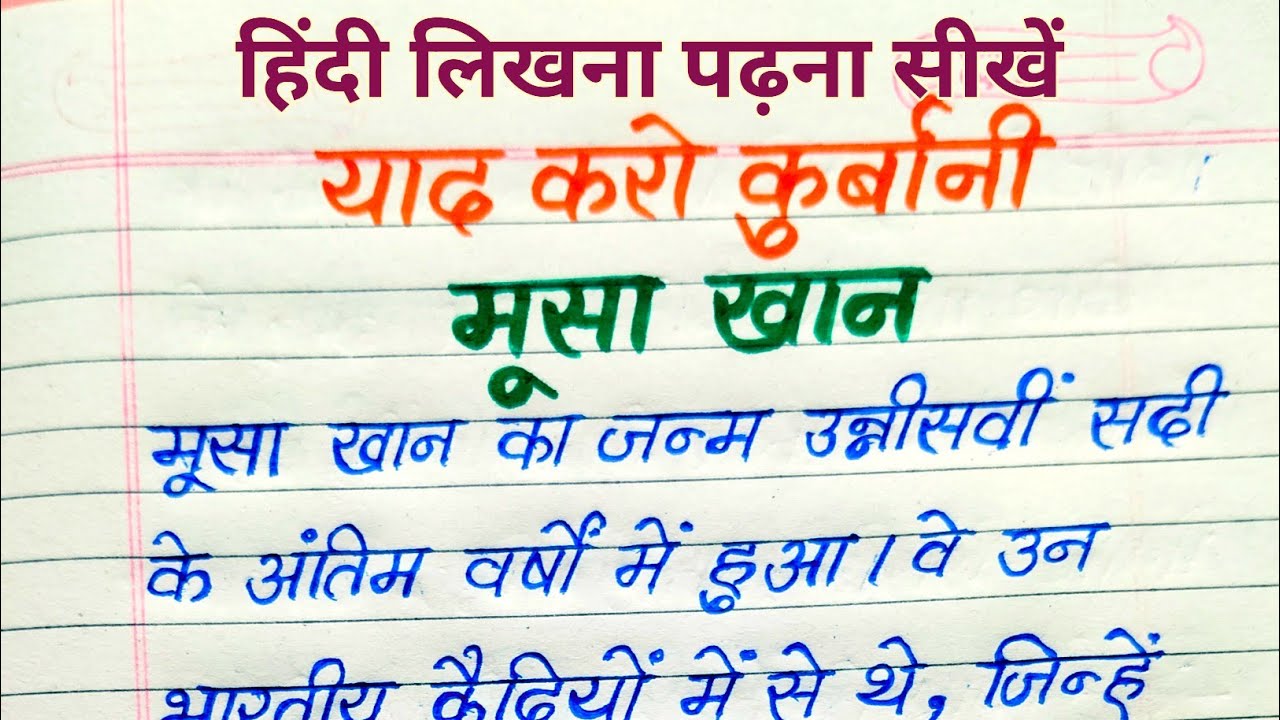 हिंदी लिखना पढ़ना सीखें
याद करो कुर्बानी
मूसा खान
मूसा खान का जन्म उन्नीसवीं सदी
के अंतिम वर्षों में हुआ। वे उन
भारतीय कैदियों में से थे, जिन्हें